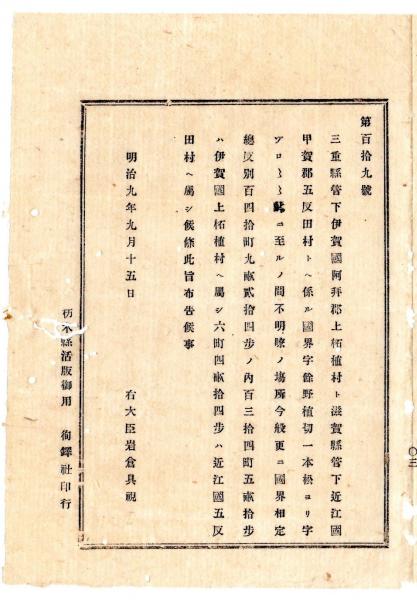 第百拾九號
三重縣管下伊賀國阿拜郡上柘植村ト滋賀縣管下近江國
甲賀郡五反田村トヘ係ル國界字餘野植切一本松ヨリ字
ヅロ〻〻ニ至ルノ間不明瞭ノ塲所今般更ニ國界相定
總反別百四拾町九畝貳拾四步ノ內百三拾四町五畝拾步
ハ伊賀國上柘植村ヘ屬シ六町四畝拾四步ハ近江國五反
田村ヘ屬シ候條此旨布吿候事
明治九年九月十五日
右大臣岩倉具視
栃木縣活版御用 徇鐸社印行
〇三